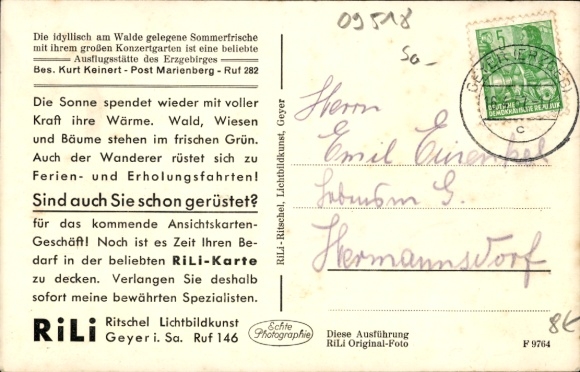 Die idyllisch am Walde gelegene Sommerfrische
mit ihrem großen Konzertgarten ist eine beliebte
Ausflugsstätte des Erzgebirges
Bes. Kurt Keinert - Post Marienberg - Ruf 282
Die Sonne spendet wieder mit voller
Kraft ihre Wärme. Wald, Wiesen
und Bäume stehen im frischen Grün.
Auch der Wanderer rüstet sich zu
Ferien- und Erholungsfahrten!
Sind auch Sie schon gerüstet?
für das kommende Ansichtskarten-
Geschäft! Noch ist es Zeit Ihren Be-
darf in der beliebten RiLi-Karte
zu decken. Verlangen Sie deshalb
sofort meine bewährten Spezialisten.
RiLi
Ritschel Lichtbildkunst
Geyer i. Sa. Ruf 146
Echte
Photographie
RiLi-Ritschel, Lichtbildkunst, Geyer
09518
50-
5
DEUTSCHE
DEMOKRATISCHE REPUBLIK
GEYER
c
Herrn
Emil
Hermannsdorf
8€
Diese Ausführung
RiLi Original-Foto
F 9764